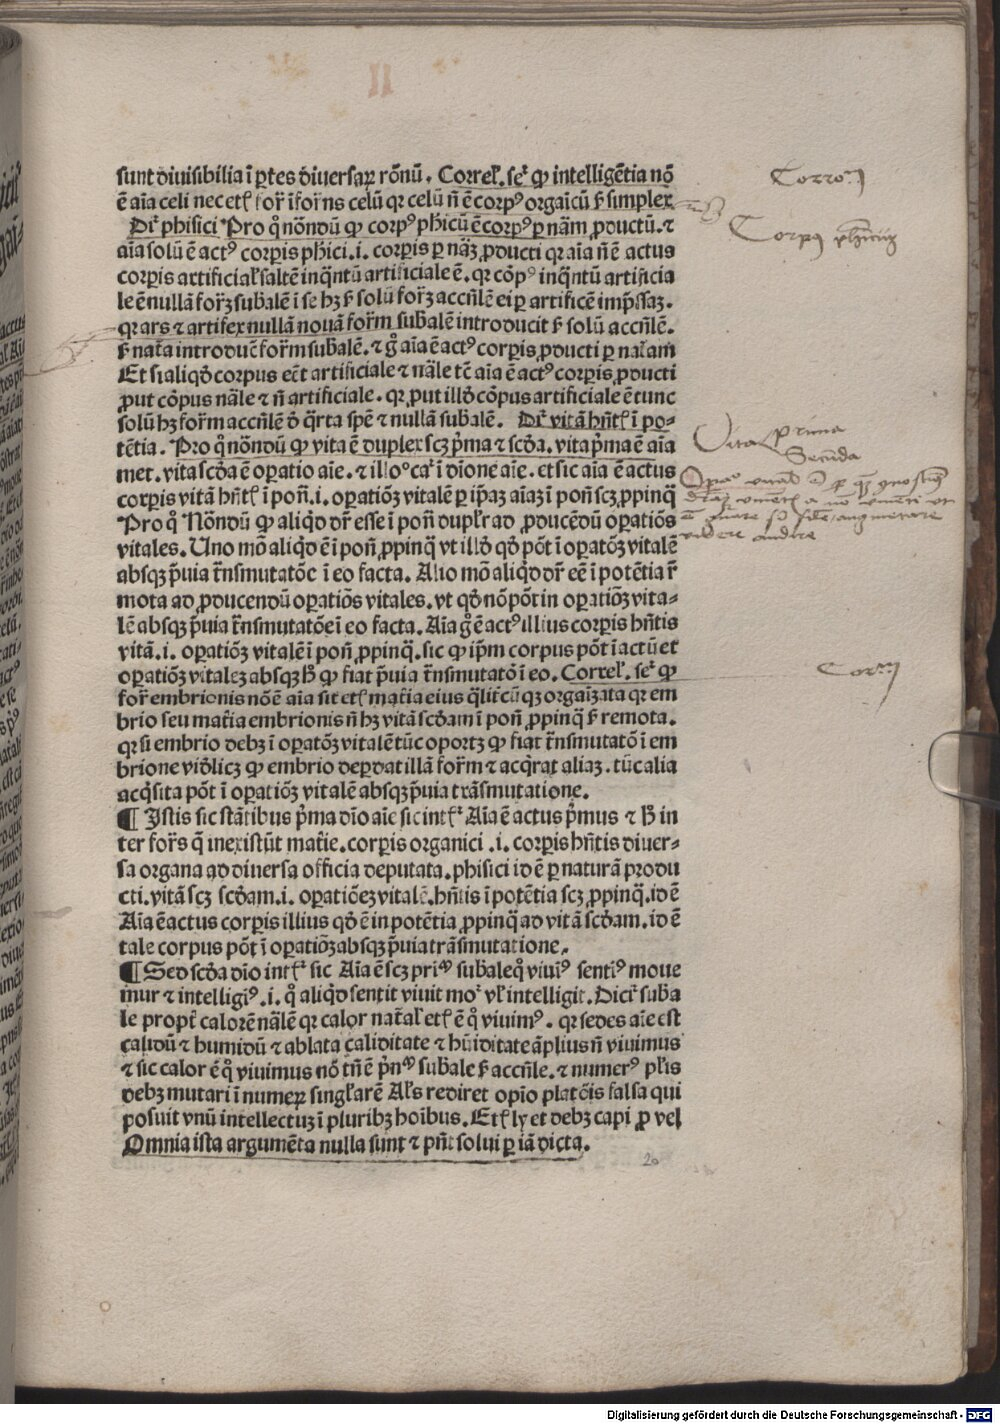 II
sunt diuisibilia ī ꝑtes diuersaꝝ rōnū. Correl. seꝰ ꝙ intelligētia nō
ē aīa celi nec etꝭ for̄ īfor̄ns celū qꝛ celū n̄ ē corpꝰ orgaīcū s̄ simplex
Dr̄ phisici Pro qͦ nōndū ꝙ corpꝰ phicū ē corpꝰ ꝑ nām ꝓductū. ⁊
aīa solū ē actꝰ corpis phici .i. corpis ꝑ nāꝫ ꝓducti qꝛ aīa n̄ ē actus
corpis artificial̓ saltē inqͣntū artificiale ē. qꝛ cōpꝰ inqͣntū artificia
le ē nullā for̄ꝫ subalē ī se hꝫ s̄ solū for̄ꝫ accn̄lē ei ꝑ artificē imp̄ssaꝫ.
qꝛ ars ⁊ artifex nullā nouā for̄m subalē introducit s̄ solū accn̄lē.
s̄ nat̄a introducē for̄m subalē. ⁊ gͦ aīa ē actꝰ corpis ꝓducti ꝑ nat̄am
Et si aliqd̓ corpus eēt artificiale ⁊ nāle tē aīa ē actꝰ corpis ꝓducti
ꝓut cōpus nāle ⁊ n̄ artificiale. qꝛ ꝓut illd̓ cōpus artificiale ē tunc
solū hꝫ for̄m accn̄lē d̓ qͣrta spē ⁊ nullā subalē. Dr̄ vitā hn̄tꝭ ī po⸗
tētia. Pro qͦ nōndū ꝙ vita ē duplex scꝫ p̄ma ⁊ scd̓a. vita p̄ma ē aīa
met. vita scd̓a ē operatio aīe. ⁊ illoº caꝛ̄ ī dīone aīe. et sic aīa ē actus
corpis vitā hn̄tꝭ ī pon̄ .i. oꝑatiōꝫ vitalē ꝑ ip̄aꝫ aīaꝫ ī pon̄ scꝫ ꝓpinqͣ
Pro qͦ Nōndū ꝙ aliqd̓ dr̄ esse ī pon̄ duplr̄ ad ꝓducēdū oꝑatiōs
vitales. Uno mō aliqd̓ ē ī pon̄ ꝓpinqͣ vt illd̓ qd̓ pōt ī oꝑatōꝫ vitalē
absqꝫ p̄uia tr̄nsmutatōe ī eo facta. Alio mō aliqd̓ dr̄ eē ī potētia r̄
mota ad ꝓducendū oꝑatiōs vitales. vt qd̓ nō pōt in oꝑatiōꝫ vita⸗
lē absqꝫ p̄uia tr̄nsmutatōe ī eo facta. Aīa gͦ ē actꝰ illius corpis hn̄tis
vitā .i. oꝑatiōꝫ vitalē ī pon̄ ꝓpinqͣ. sic ꝙ ip̄m corpus pōt ī actū et
oꝑatiōꝫ vitaleꝫ absqꝫ h̓ ꝙ fiat p̄uia tr̄nsmutatō ī eo. Correl. seꝰ ꝙ
for̄ embrionis nō ē aīa sit etꝭ mat̄ia eius qͣlit̓cūqꝫ orgaīzata qꝛ em
brio seu mat̄ia embrionis n̄ hꝫ vitā scd̓am ī pon̄ ꝓpinqͣ s̄ remota.
qꝛ si embrio debꝫ ī oꝑatōꝫ vitalē tūc oportꝫ ꝙ fiat tr̄nsmutatō ī em
brione vid̓licꝫ ꝙ embrio deꝑdat illā for̄m ⁊ acqͥrat aliaꝫ. tūc alia
acqͥsita pōt ī oꝑatiōꝫ vitalē absqꝫ p̄uia trāsmutatione.
¶ Istis sic stātibus p̄ma dīo aīe sic intꝭꝰ Aīa ē actus p̄mus ⁊ h̓ in
ter for̄s q̄ inexistūt mat̄ie. corpis organici .i. corpis hn̄tis diuer⸗
sa organa ad diuersa officia deputata. phisici id ē ꝑ naturā produ
cti. vitā scꝫ scd̓am .i. oꝑatiōeꝫ vitalē. hn̄tis ī potētia scꝫ ꝓpinqͣ. id ē
Aīa ē actus corpis illius qd̓ ē in potētia ꝓpinqͣ ad vitā scd̓am. id ē
tale corpus pōt ī oꝑatiōꝫ absqꝫ p̄uia trāsmutatione.
¶ Sed scd̓a dīo intꝭꝰ sic Aīa ē scꝫ priᵐ subale qͦ viuīꝰ sentīꝰ moue
mur ⁊ intelligīꝰ .i. qͦ aliqd̓ sentit viuit moꝰ vl̓ intelligit. Dicꝰ suba
le propt̓ calorē nālē qꝛ calor nat̄al̓ etꝭ ē qͦ viuimꝰ. qꝛ sedes aīe est
calidū ⁊ humidū ⁊ ablata caliditate ⁊ hūiditate āplius n̄ viuimus
⁊ sic calor ē qͦ viuimus nō tn̄ ē p̄nᵐ subale s̄ accn̄le. ⁊ numerꝰ pl̓is
debꝫ mutari ī numeꝝ singl̓arē Al̓s rediret opīo platōis falsa qui
posuit vnū intellectuꝫ ī pluribꝫ hoībus. Etꝭ ly et debꝫ capi ꝓ vel
Omnia ista argumēta nulla sunt ⁊ pn̄t solui ꝑ iā dicta.
Corroꝭ
Corpꝰ phicuꝫ
Vita Prima
Secunda
videre audire
Corꝭ
20
Digitalisierung gefördert durch die Deutsche Forschungsgemeinschaft - DFG